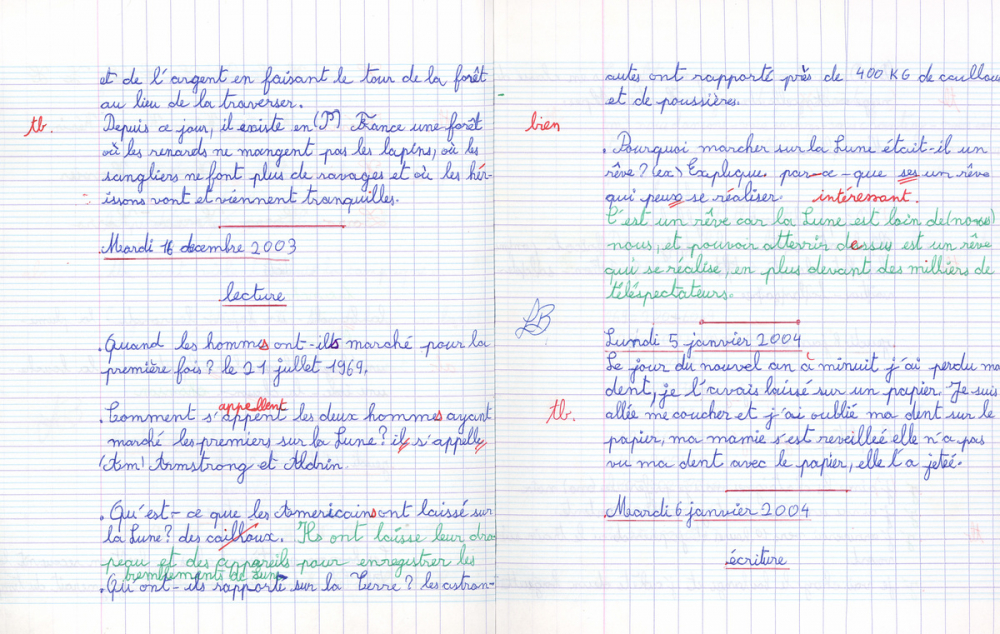 et de l'argent en faisant le tour de la forêt
au lieu de la traverser.
tb.
Depuis ce jour, il existe en (P) France une forêt
où les renards ne mangent pas les lapins, où les
sangliers ne font plus de ravages et où les hér-
issons vont et viennent tranquilles.
Mardi 16 decembre 2003
lecture
. Quand les hommes ont-ils marché pour la
première fois? le 21 juillet 1969.
appellent
. Comment s'appent les deux hommes ayant
marché les premiers sur la Lune? ils s'appelle
(Am) Armstrong et Aldrin.
. Qu'est-ce que les Américains ont laissé sur
la Lune? des cailloux. Ils ont laissé leur dra
peau et des appareils pour enregistrer les
tremblements de Lune
. Qu'ont-ils rapporté sur la Terre? les astron-
autes ont rapporté près de 400 KG de caillou
et de poussières.
bien
. Pourquoi marcher sur la Lune était-il un
rêve? (ex) Explique. par-ce-que ses un rêve
qui peux se réaliser. intéressant.
C'est un rêve car la Lune est loin de (nous)
nous, et pouvoir atterrir dessus est un rêve
qui se réalise, en plus devant des milliers de
téléspectateurs.
LB
Lundi 5 janvier 2004
Le jour du nouvel an à minuit j'ai perdu ma
dent, je l'avais laissé sur un papier. Je suis
tb.
allée me coucher et j'ai oublié ma dent sur le
papier, ma mamie s'est reveilleé elle n'a pas
vu ma dent avec le papier, elle l'a jeteé.
Mardi 6 janvier 2004
écriture